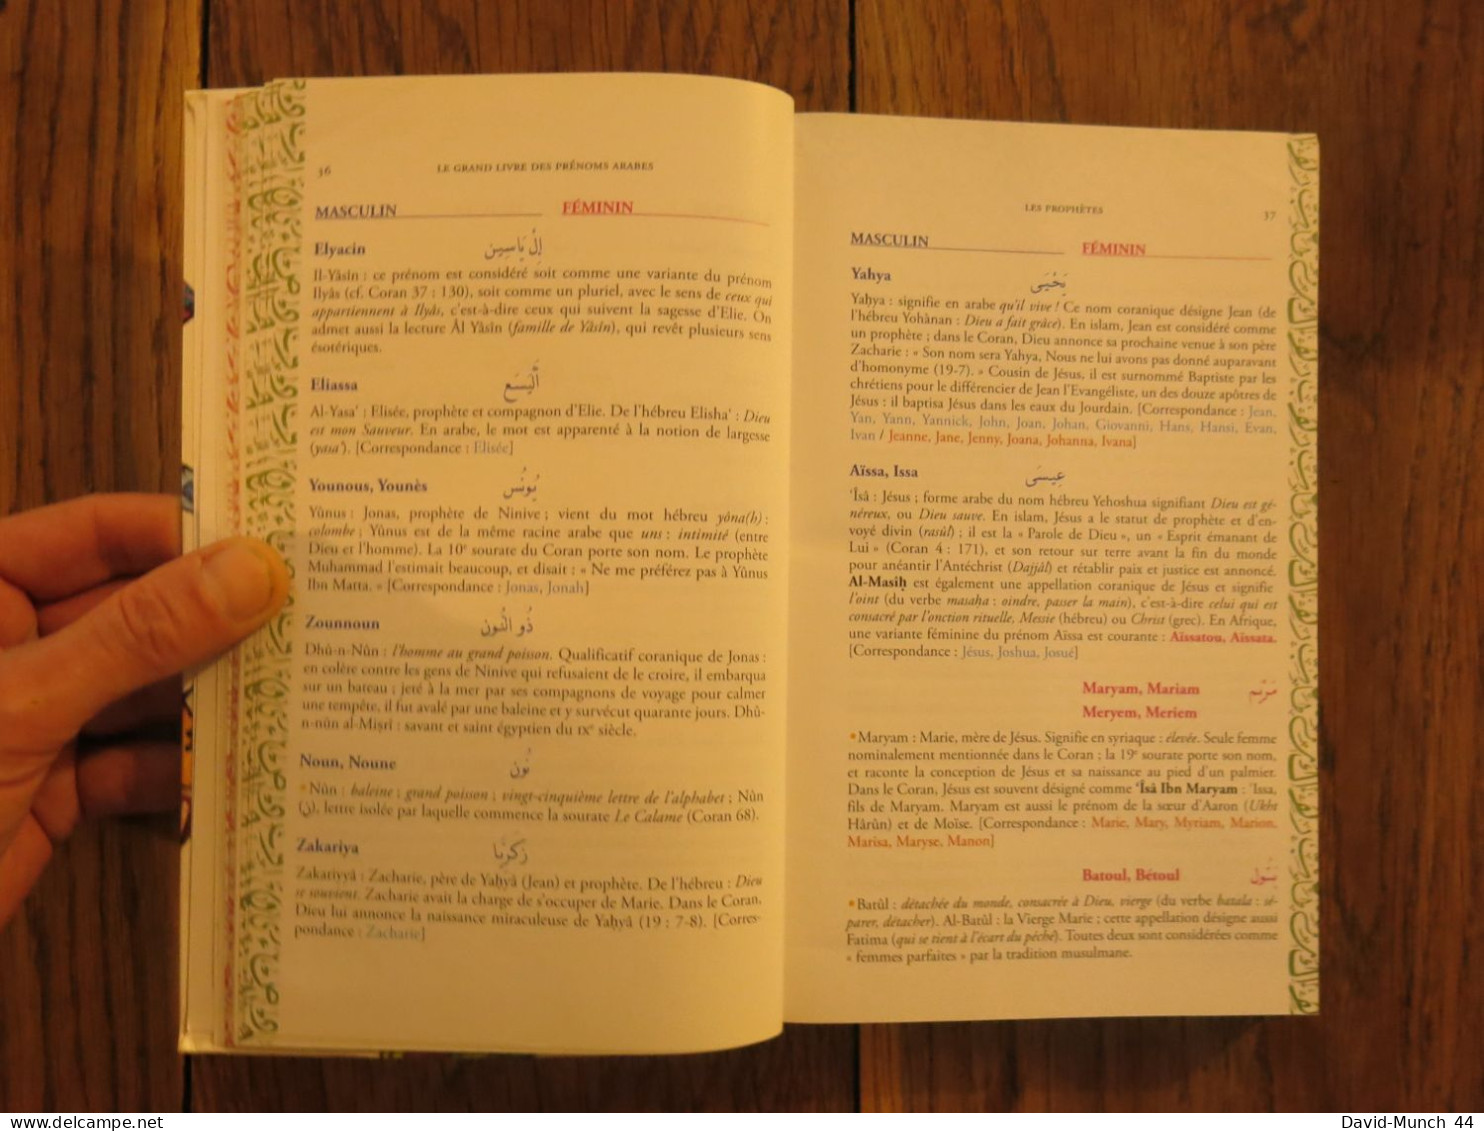 36
LE GRAND LIVRE DES PRÉNOMS ARABES
MASCULIN FÉMININ
Elyacin إِلْ يَاسِين
Il-Yâsîn : ce prénom est considéré soit comme une variante du prénom
Ilyâs (cf. Coran 37 : 130), soit comme un pluriel, avec le sens de ceux qui
appartiennent à Ilyâs, c'est-à-dire ceux qui suivent la sagesse d'Elie. On
admet aussi la lecture Âl Yâsîn (famille de Yâsîn), qui revêt plusieurs sens
ésotériques.
Eliassa أَلْيَسَع
Al-Yasa' : Elisée, prophète et compagnon d'Elie. De l'hébreu Elisha' : Dieu
est mon Sauveur. En arabe, le mot est apparenté à la notion de largesse
(yasa'). [Correspondance : Elisée]
Younous, Younès يُونُس
Yûnus : Jonas, prophète de Ninive ; vient du mot hébreu yôna(h) :
colombe ; Yûnus est de la même racine arabe que uns : intimité (entre
Dieu et l'homme). La 10e sourate du Coran porte son nom. Le prophète
Muhammad l'estimait beaucoup, et disait : « Ne me préférez pas à Yûnus
Ibn Matta. » [Correspondance : Jonas, Jonah]
Zounnoun ذُو النُّون
Dhû-n-Nûn : l'homme au grand poisson. Qualificatif coranique de Jonas :
en colère contre les gens de Ninive qui refusaient de le croire, il embarqua
sur un bateau ; jeté à la mer par ses compagnons de voyage pour calmer
une tempête, il fut avalé par une baleine et y survécut quarante jours. Dhû-
n-nûn al-Miṣrî : savant et saint égyptien du IXe siècle.
Noun, Noune نُون
•Nûn : baleine ; grand poisson ; vingt-cinquième lettre de l'alphabet ; Nûn
(ن), lettre isolée par laquelle commence la sourate Le Calame (Coran 68).
Zakariya زَكَرِيَّا
Zakariyyâ : Zacharie, père de Yaḥyâ (Jean) et prophète. De l'hébreu : Dieu
se souvient. Zacharie avait la charge de s'occuper de Marie. Dans le Coran,
Dieu lui annonce la naissance miraculeuse de Yaḥyâ (19 : 7-8). [Corres-
pondance : Zacharie]
LES PROPHÈTES
37
MASCULIN FÉMININ
Yahya يَحْيَى
Yaḥya : signifie en arabe qu'il vive ! Ce nom coranique désigne Jean (de
l'hébreu Yohânan : Dieu a fait grâce). En islam, Jean est considéré comme
un prophète ; dans le Coran, Dieu annonce sa prochaine venue à son père
Zacharie : « Son nom sera Yahya, Nous ne lui avons pas donné auparavant
d'homonyme (19-7). » Cousin de Jésus, il est surnommé Baptiste par les
chrétiens pour le différencier de Jean l'Evangéliste, un des douze apôtres de
Jésus : il baptisa Jésus dans les eaux du Jourdain. [Correspondance : Jean,
Yan, Yann, Yannick, John, Joan, Johan, Giovanni, Hans, Hansi, Evan,
Ivan / Jeanne, Jane, Jenny, Joana, Johanna, Ivana]
Aïssa, Issa عِيسَى
'Îsâ : Jésus ; forme arabe du nom hébreu Yehoshua signifiant Dieu est gé-
néreux, ou Dieu sauve. En islam, Jésus a le statut de prophète et d'en-
voyé divin (rasûl) ; il est la « Parole de Dieu », un « Esprit émanant de
Lui » (Coran 4 : 171), et son retour sur terre avant la fin du monde
pour anéantir l'Antéchrist (Dajjâl) et rétablir paix et justice est annoncé.
Al-Masiḥ est également une appellation coranique de Jésus et signifie
l'oint (du verbe masaḥa : oindre, passer la main), c'est-à-dire celui qui est
consacré par l'onction rituelle, Messie (hébreu) ou Christ (grec). En Afrique,
une variante féminine du prénom Aïssa est courante : Aïssatou, Aïssata.
[Correspondance : Jésus, Joshua, Josué]
Maryam, Mariam مَرْيَم
Meryem, Meriem
•Maryam : Marie, mère de Jésus. Signifie en syriaque : élevée. Seule femme
nominalement mentionnée dans le Coran ; la 19e sourate porte son nom,
et raconte la conception de Jésus et sa naissance au pied d'un palmier.
Dans le Coran, Jésus est souvent désigné comme 'Îsâ Ibn Maryam : 'Issa,
fils de Maryam. Maryam est aussi le prénom de la sœur d'Aaron (Ukht
Hârûn) et de Moïse. [Correspondance : Marie, Mary, Myriam, Marion,
Marisa, Maryse, Manon]
Batoul, Bétoul بَتُول
•Batûl : détachée du monde, consacrée à Dieu, vierge (du verbe batala : sé-
parer, détacher). Al-Batûl : la Vierge Marie ; cette appellation désigne aussi
Fatima (qui se tient à l'écart du péché). Toutes deux sont considérées comme
« femmes parfaites » par la tradition musulmane.
delcampe.net
David-Munch 44